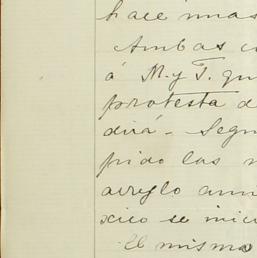 hace unas
Ambas c
á M. y T. qu
protesta d
dirá - Segu
pido las
arreglo
xico se inic
El mismo